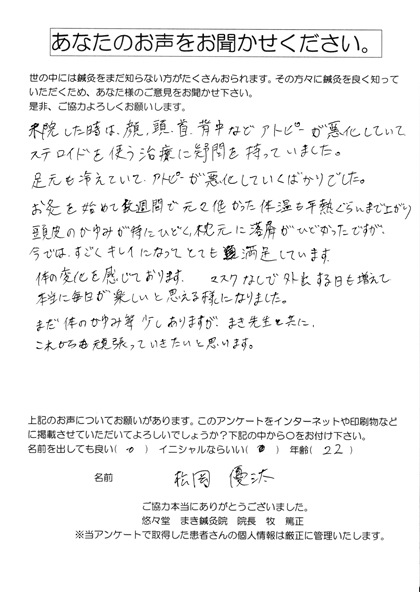 あなたのお声をお聞かせください。
世の中には鍼灸をまだ知らない方がたくさんおられます。その方々に鍼灸を良く知って
いただくため、あなた様のご意見をお聞かせ下さい。
是非、ご協力よろしくお願いします。
来院した時は、顔、頭、首、背中などアトピーが悪化していて
ステロイドを使う治療に疑問を持っていました。
足元も冷えていて、アトピーが悪化していくばかりでした。
お灸を始めて数週間で元々低かった体温も平熱ぐらいまで上がり
頭皮のかゆみが特にひどく、枕元に落屑がひどかったですが、
今では、すごくキレイになってとても満足しています。
体の変化を感じております。 マスクなしで外出する日も増えて
本当に毎日が楽しいと思える様になりました。
まだ体のかゆみ等少しありますが、まき先生と共に、
これからも頑張っていきたいと思います。
上記のお声についてお願いがあります。このアンケートをインターネットや印刷物など
に掲載させていただいてよろしいでしょうか?下記の中から○をお付け下さい。
名前を出しても良い( ) イニシャルならいい( ) 年齢( 22 )
名前 松岡 優汰
ご協力本当にありがとうございました。
悠々堂 まき鍼灸院 院長 牧 篤正
※当アンケートで取得した患者さんの個人情報は厳正に管理いたします。